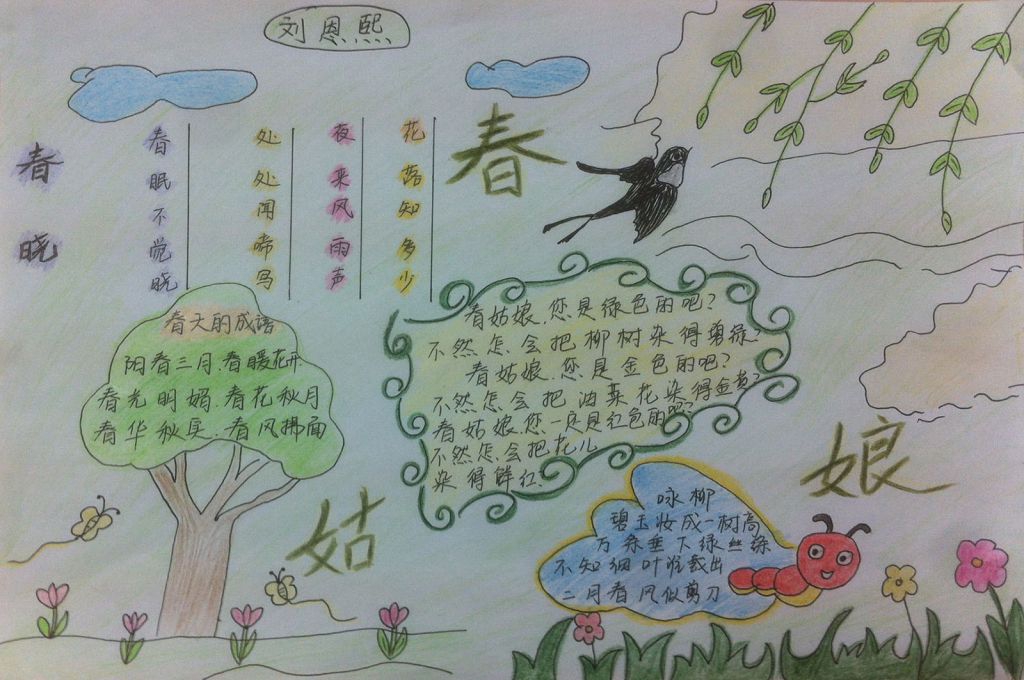 刘恩熙
春晓
春眠不觉晓
处处闻啼鸟
夜来风雨声
花落知多少
春
姑
娘
春天的成语
阳春三月.春暖花开
春光明媚.春花秋月
春华秋实.春风拂面
春姑娘.您是绿色的吧?
不然怎会把柳树染得翠绿?
春姑娘.您是金色的吧?
不然怎会把油菜花染得金黄?
春姑娘.您一定是红色的吧?
不然怎会把花儿
染得鲜红?
咏柳
碧玉妆成一树高
万条垂下绿丝绦
不知细叶谁裁出
二月春风似剪刀